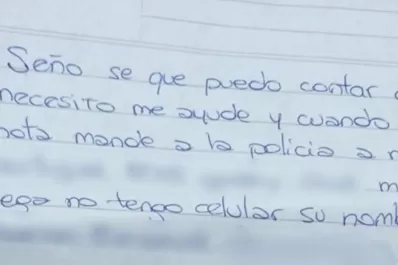 Seño se que puedo contar
necesito me ayude y cuando
nota mande a la policia a
m
ega no tengo celular su nom